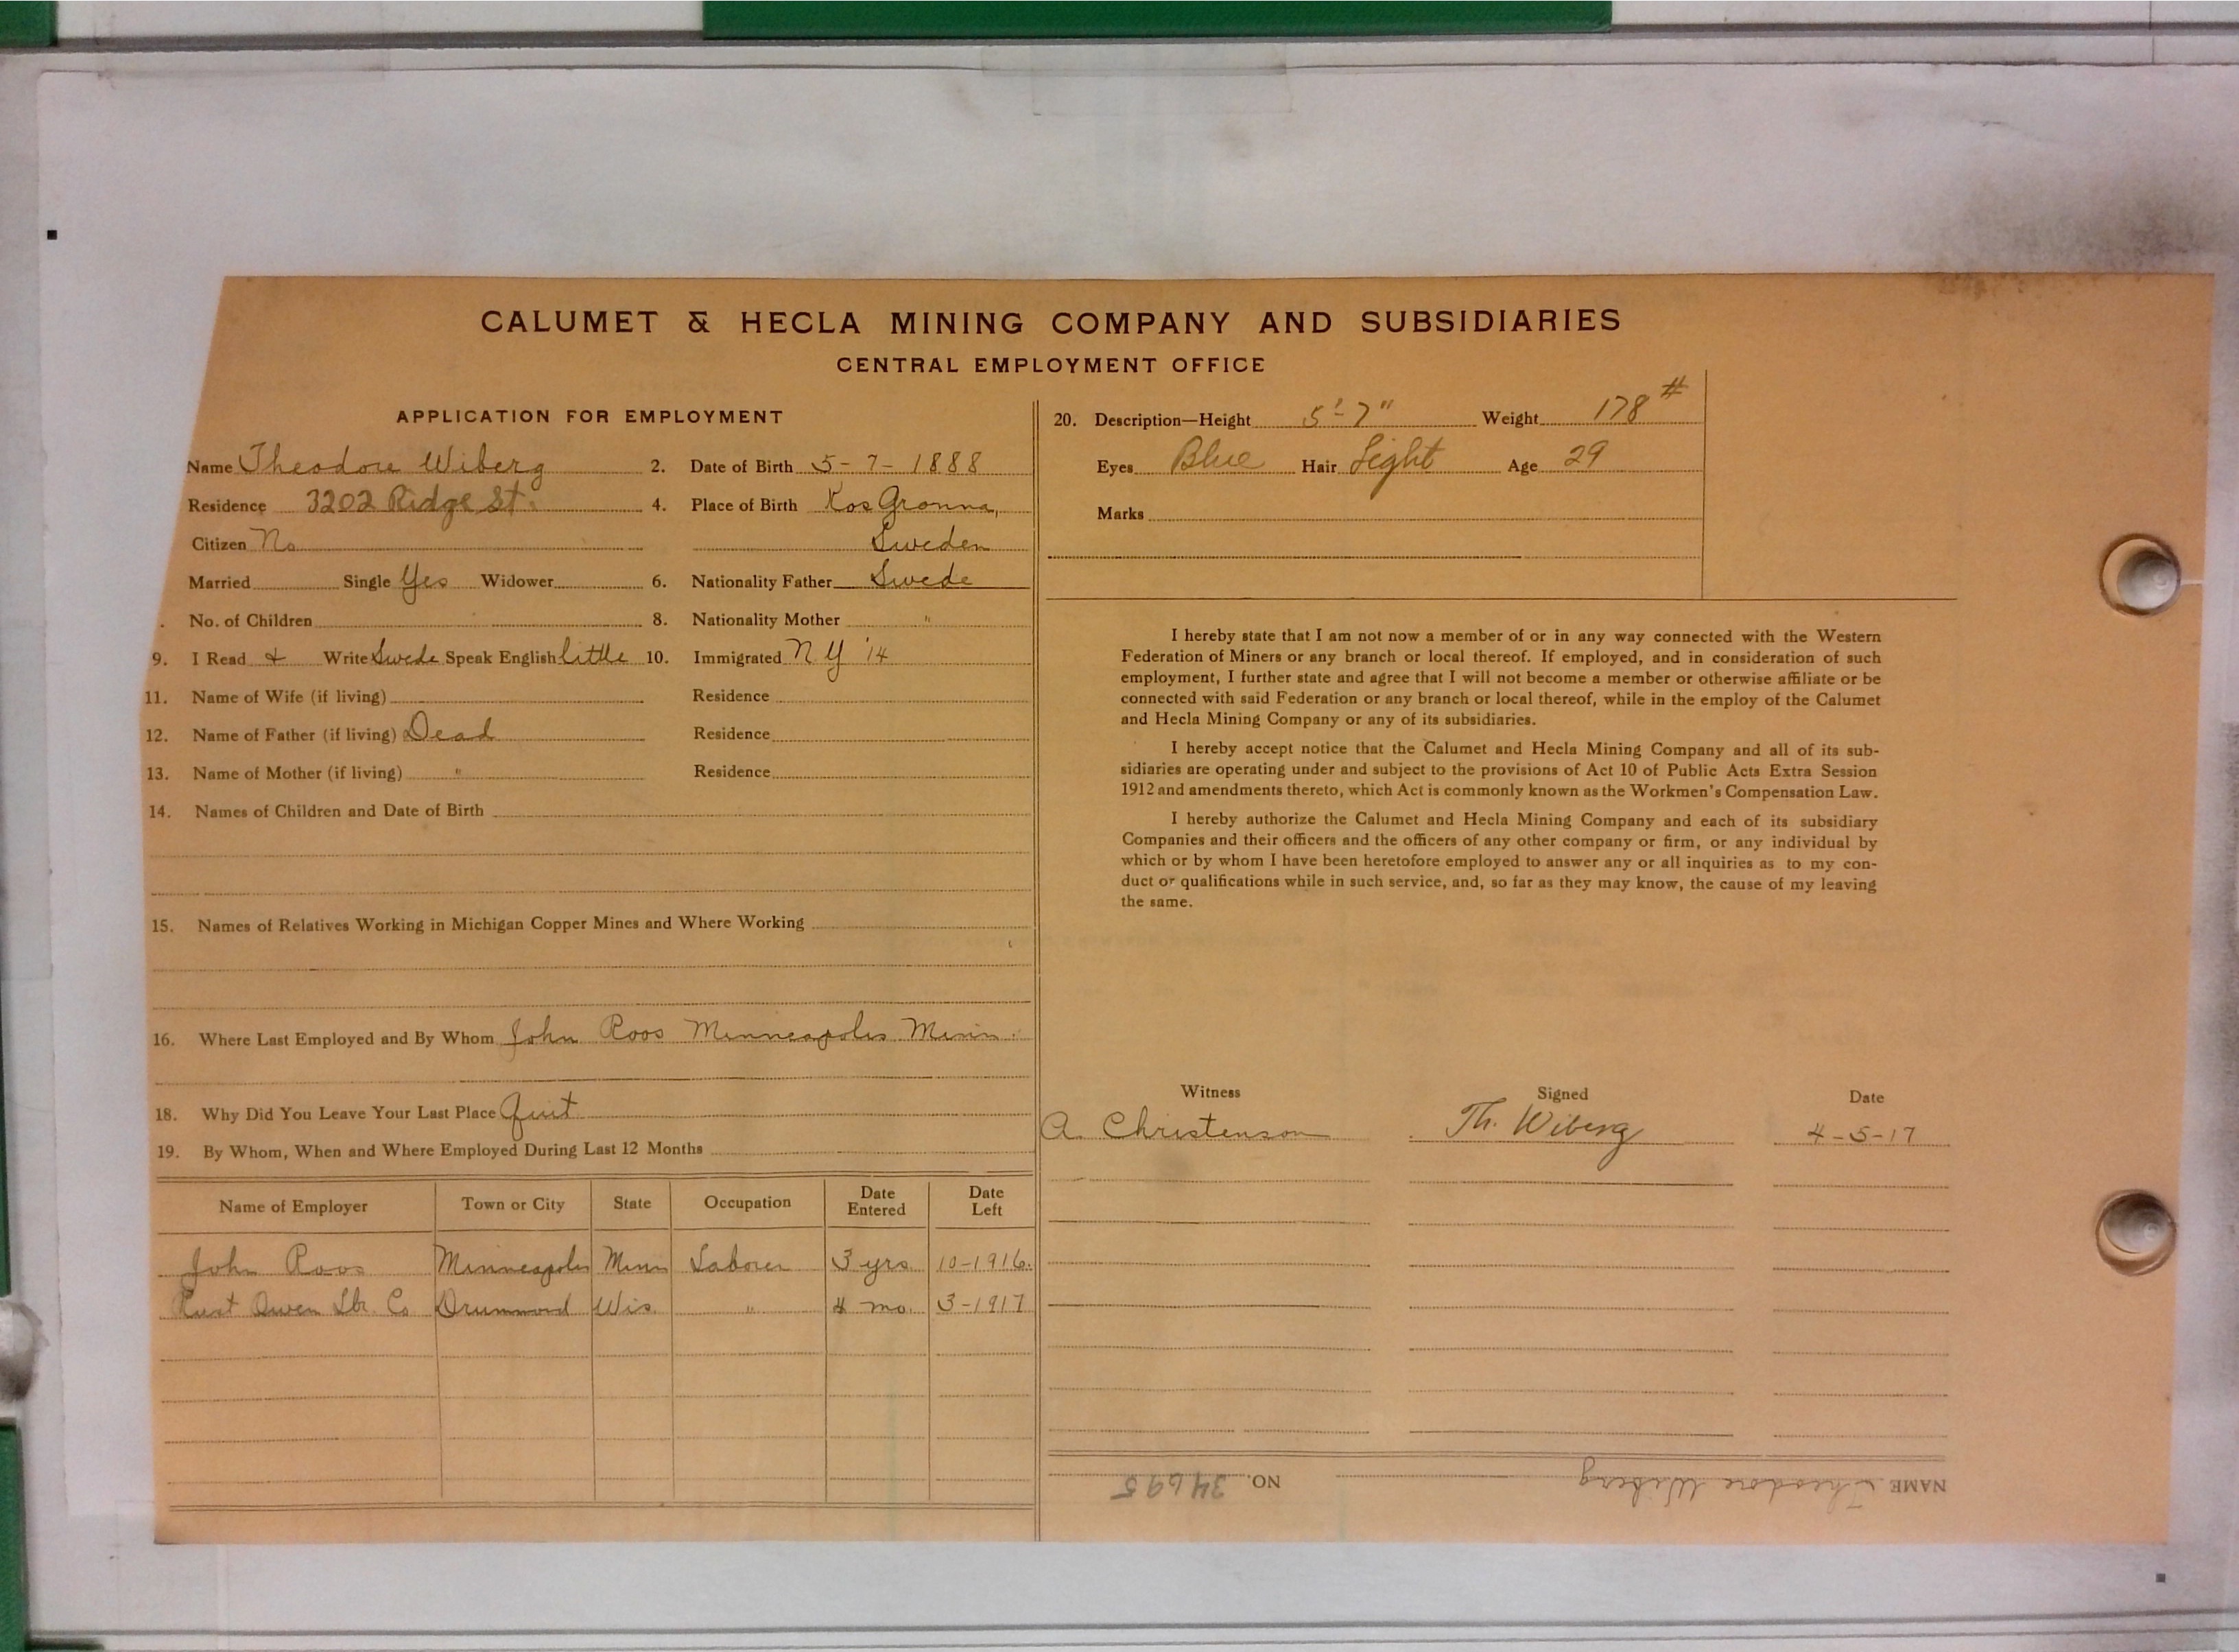 CALUMET & HECLA MINING COMPANY AND SUBSIDIARIES
CENTRAL EMPLOYMENT OFFICE
APPLICATION FOR EMPLOYMENT
Name Theodore Wiberg 2. Date of Birth 5-7-1888
Residence 3202 Ridge St. 4. Place of Birth Kos Gronna,
Citizen No Sweden
Married Single Yes Widower 6. Nationality Father Swede
No. of Children 8. Nationality Mother "
9. I Read & Write Swede Speak English little 10. Immigrated N Y '14
11. Name of Wife (if living) Residence
12. Name of Father (if living) Dead Residence
13. Name of Mother (if living) " Residence
14. Names of Children and Date of Birth
15. Names of Relatives Working in Michigan Copper Mines and Where Working
16. Where Last Employed and By Whom John Roos Minneapolis Minn.
18. Why Did You Leave Your Last Place Quit
19. By Whom, When and Where Employed During Last 12 Months
Name of Employer Town or City State Occupation Date Entered Date Left
John Roos Minneapolis Minn Laborer 3 yrs. 10-1916.
Rust Owen Lbr. Co Drummond Wis. " 4 mo. 3-1917
20. Description—Height 5'-7" Weight 178 #
Eyes Blue Hair Light Age 29
Marks
I hereby state that I am not now a member of or in any way connected with the Western
Federation of Miners or any branch or local thereof. If employed, and in consideration of such
employment, I further state and agree that I will not become a member or otherwise affiliate or be
connected with said Federation or any branch or local thereof, while in the employ of the Calumet
and Hecla Mining Company or any of its subsidiaries.
I hereby accept notice that the Calumet and Hecla Mining Company and all of its sub-
sidiaries are operating under and subject to the provisions of Act 10 of Public Acts Extra Session
1912 and amendments thereto, which Act is commonly known as the Workmen's Compensation Law.
I hereby authorize the Calumet and Hecla Mining Company and each of its subsidiary
Companies and their officers and the officers of any other company or firm, or any individual by
which or by whom I have been heretofore employed to answer any or all inquiries as to my con-
duct or qualifications while in such service, and, so far as they may know, the cause of my leaving
the same.
Witness Signed Date
A. Christenson Th. Wiberg 4-5-17
NAME Theodore Wiberg NO. 34695